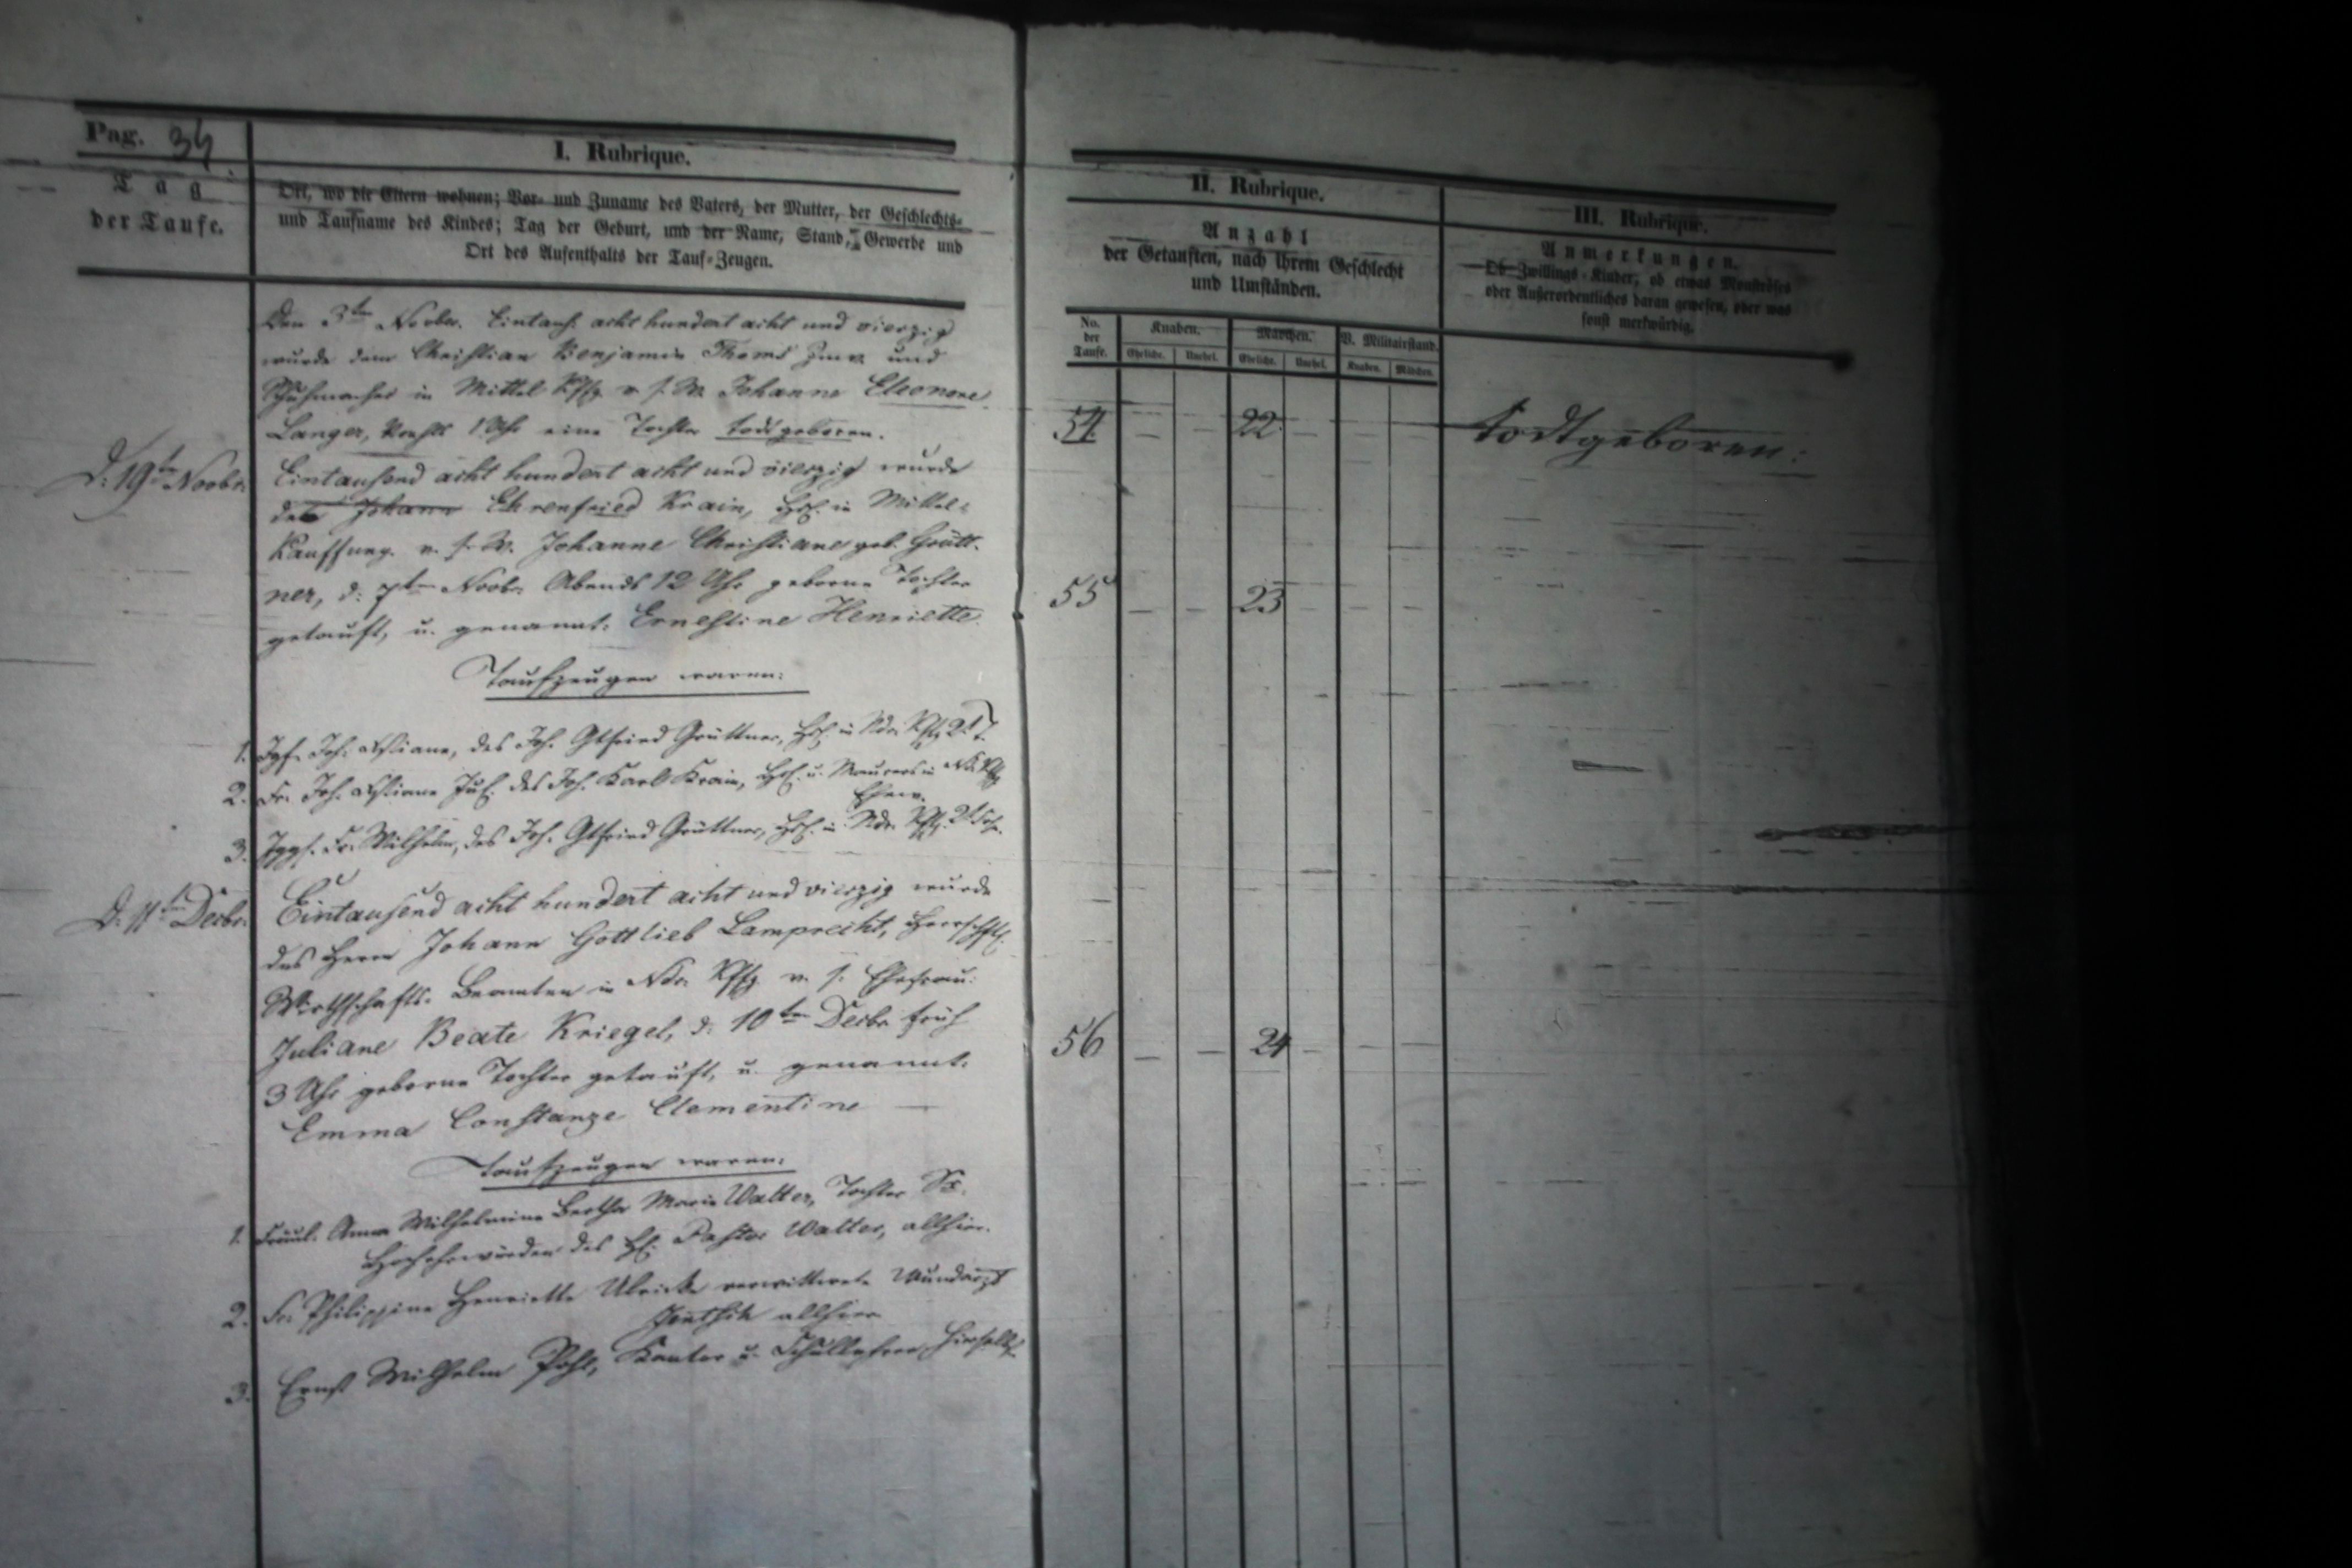 Pag. 34
I. Rubrique.
Tag
der Taufe.
Ort, wo die Eltern wohnen; Vor- und Zuname des Vaters, der Mutter, der Geschlechts-
und Taufname des Kindes; Tag der Geburt, und der Name, Stand, Gewerbe und
Ort des Aufenthalts der Tauf-Zeugen.
Den 3ten Novbr. Eintaus. acht hundert acht und vierzig
wurde dem Christian Benjamin Thoms und
Schuhmacher in Mittel Kffg v. s. W. Johanne Eleonore
Langer, Nachts 1 Uhr eine Tochter todt geboren.
D. 19ten Novbr. Eintausend acht hundert acht und vierzig wurde
des Johann Ehrenfried Krain, Hsl. in Mittel-
Kauffung. v. s. W. Johanne Christiane geb. Grütt-
ner, d. 7ten Novbr. Abends 12 Uhr geborne Tochter
getauft, u. genannt: Ernestine Henriette
Taufzeugen waren:
1. Jgf. Joh. Christiane, des Joh. Gtfried Grüttner, Hsl. in Ndr. Kffg 2t. T.
2. Fr. Joh. Christiane Jul. des Joh. Karl Krain, Hsl. u. Maurers in Ndr. Kffg
Ehew.
3. Jggs. Fr. Wilhelm, des Joh. Gtfried Grüttner, Hsl. in Ndr. Kffg. 2t. Sohn.
D. 11ten Decbr. Eintausend acht hundert acht und vierzig wurde
des Herrn Johann Gottlieb Lamprecht, Herrschftl.
Wirthschafts-Beamten in Ndr. Kffg v. s. Ehefrau:
Juliane Beate Kriegel, d. 10ten Decbr früh
3 Uhr geborne Tochter getauft, u. genannt:
Emma Constanze Clementine
Taufzeugen waren:
1. Fräul. Anna Wilhelmine Bertha Marie Walter, Tochter Sr.
Hochehrwürden des H. Pastor Walter, allhier.
2. Fr. Philippine Henriette Ulricke verwittwete Wundarzt
allhier
3. Ernst Wilhelm Pohl, Kantor u. Schullehrer hierselbst
II. Rubrique.
Anzahl
der Getauften, nach ihrem Geschlecht
und Umständen.
No. der Taufe.
Knaben. Mädchen. V. Militairstand.
Eheliche. Unehel. Eheliche. Unehel. Knaben. Mädchen.
54. — — 22 — — —
55 — — 23 — — —
56 — — 24 — — —
III. Rubrique.
Anmerkungen.
Ob Zwillings-Kinder, ob etwas Monströses
oder Außerordentliches daran gewesen, oder was
sonst merkwürdig.
todtgeboren: